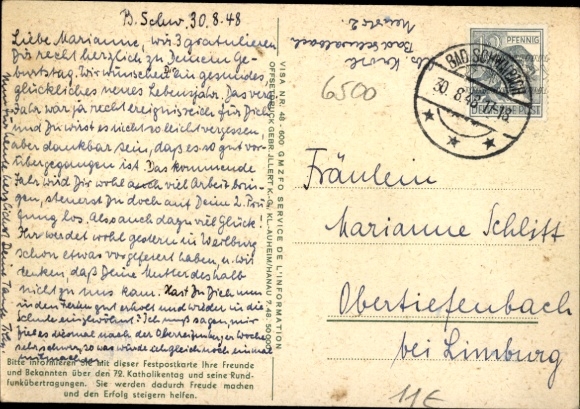 B. Schw. 30. 8. 48
Liebe Marianne, wir 3 gratulieren
Dir recht herzlich zu Deinem Ge-
burtstag. Wir wünschen Dir ein gesundes
glückliches neues Lebensjahr. Das ver
Jahr war ja recht ereignisreich für Dich
und Du wirst es nicht so leicht vergessen,
aber dankbar sein, daß es so gut vor-
übergegangen ist. Das kommende
Jahr wird Dir wohl auch viel Arbeit brin-
gen, steuerst Du doch auf Deine 2. Prü
fung los. Also auch dazu viel Glück!
Ihr werdet wohl gestern in
schon etwas vorgefeiert haben u. wir
denken, daß Deine Mutter deshalb
nicht zu uns kam. Hast Du Dich nun
in den Ferien gut erholt und wieder in die
Schule eingewöhnt? Ich muß sagen, mir
fiel es diesmal nach der
sehr schwer, so was würde ich gleich noch einmal
mitmachen
Bitte informieren Sie mit dieser Festpostkarte Ihre Freunde
und Bekannten über den 72. Katholikentag und seine Rund-
funkübertragungen. Sie werden dadurch Freude machen
und den Erfolg steigern helfen.
VISA NR. 48 - 600 GMZFO SERVICE DE L'INFORMATION
OFFSETDRUCK GEBR. ILLERT K.-G., KL. AUHEIM/HANAU 7. 48. 50 000
Bad Schwalbach
6500
PFENNIG
DEUTSCHE POST
BAD SCHWALBACH
30. 8. 48. 17-18
Fräulein
Marianne Schlitt
Obertiefenbach
bei Limburg
11E